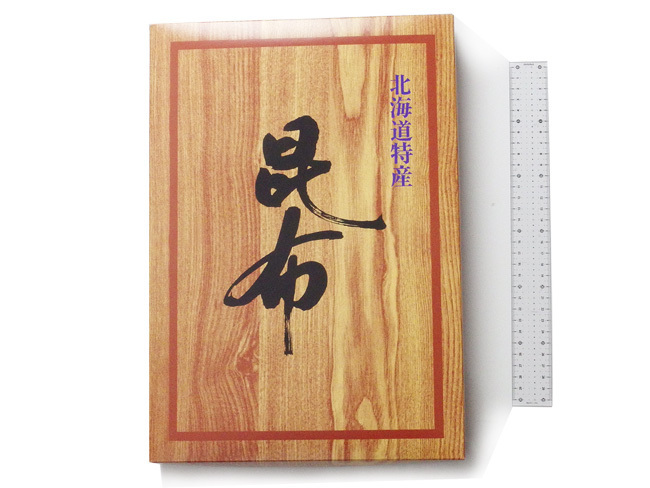 北海道特産
昆布